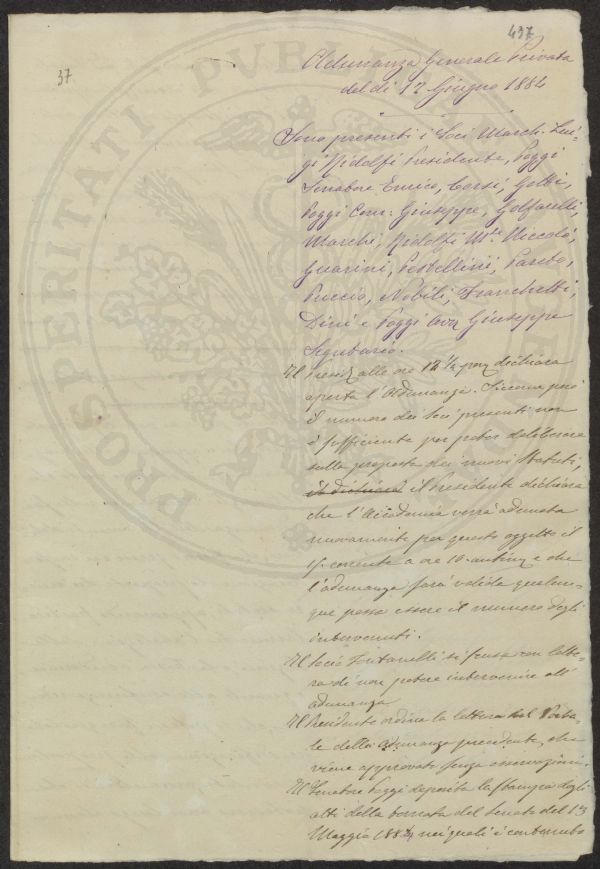 437
37
Adunanza Generale Privata
del dì 12 Giugno 1884
Sono presenti i Soci March. Lui-
gi Ridolfi Presidente, Poggi
Senatore Enrico, Corsi, Gotti,
Poggi Com: Giuseppe, Golfarelli,
Marchi, Ridolfi M.se Niccolò,
Guarini, Pestellini, Pareto,
Puccio, Nobili, Franchetti,
Dini e Poggi Avv Giuseppe
Segretario.
Il Presid. alle ore 12 ½ pom dichiara
aperta l'Adunanza. Siccome però
il numero dei Soci presenti non
è sufficiente per poter deliberare
sulla proposta dei nuovi Statuti,
il Presidente dichiara
che l'Accademia verrà adunata
nuovamente per questo oggetto il
corrente a ore 10 antim e che
l'adunanza sarà valida qualun-
que possa essere il numero degli
intervenuti.
Il Socio si scusa con lette-
ra di non potere intervenire all'
adunanza.
Il Presidente ordina la lettura del Verba-
le della Adunanza precedente, che
viene approvato senza osservazioni.
Il Senatore Poggi deposita la stampa degli
atti della tornata del Senato del 13
Maggio 1884, nei quali è contenuto
PROSPERITATI PUBLICAE